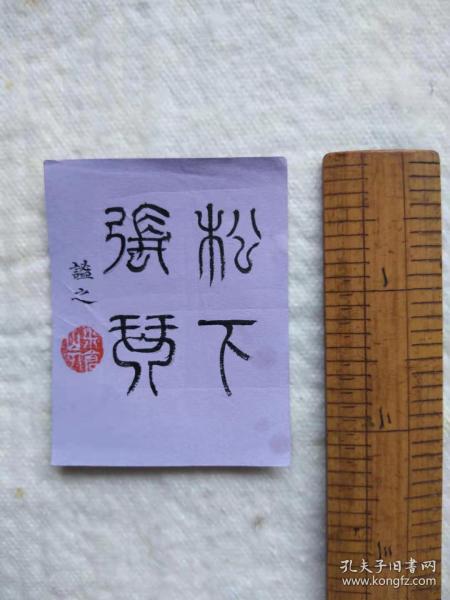 松下
張琴
謐之
一
二
三
孔夫子旧书网
www.kongfz.com